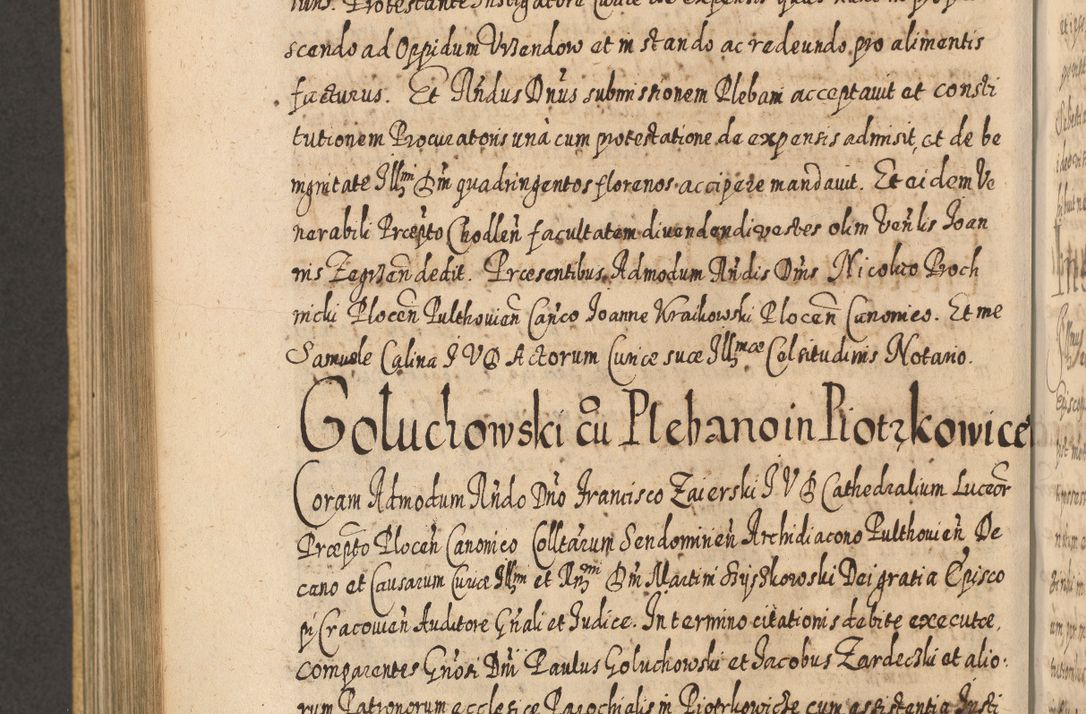 scendo ad Oppidum Vrzendow et in stando ac redeundo pro alimentis
facturus. Et Rndus Dnus submissionem Plebani acceptauit et consti
tutionem Procuratoris unà cum protestatione de expensis admisit, et de be
nignitate Illmi Dni quadringentos florenos accipere mandauit. Et eidem Ve
nerabili Præpto Chodlen facultatem diuendendi vestes olim Venlis Ioan
nis Zegrzan dedit. Præsentibus Admodum Rndis Dnis Nicolao Broch
nicki Plocen Pulthouien Canco Ioanne Kraikowski Plocen Canonico. Et me
Samuele Calina I V D Actorum Curiæ suæ Illmæ Celsitudinis Notario.
Goluchowski cu Plebano in Piotrkowice
Coram Admodum Rndo Dno Francisco Zaierski I V D Cathedralium Luceor
Præpto Plocen Canonico Colltarum Sendominen Archidiacono Pulthouien De
cano et Causarum Curiæ Illmi et Rndmi Dni Martini Szyszkowski Dei gratia Episco
pi Cracouien Auditore Gnali et Iudice. In termino citationis debite executæ,
comparentes Gnosi Dni Paulus Goluchowski et Iacobus Zardecski et alio
rum Patronorum ecclesiæ Parochialis in Piotrkowicze cum assistentia Insti